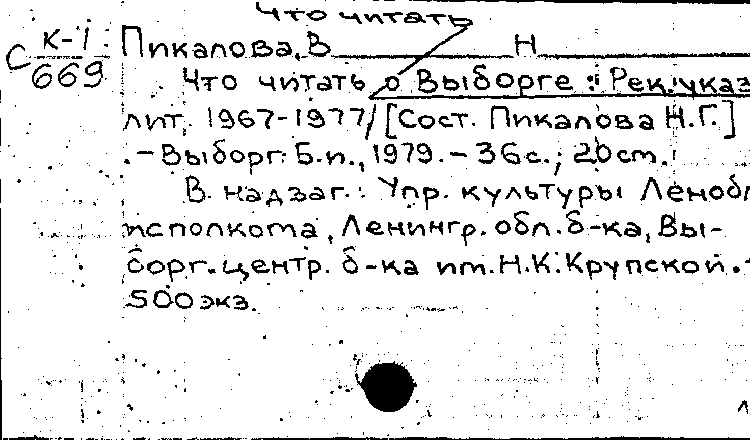 Что читать
С К-1/669 Пикалова, В Н
Что читать о Выборге : Рек. указ.
лит. 1967-1977/[Сост. Пикалова Н.Г.]
.-Выборг: Б.и., 1979.-36с.; 20см.
В надзаг.: Упр. культуры Ленобл
исполкома, Ленингр. обл. б-ка, Вы-
борг. центр. б-ка им. Н.К.Крупской.-
500экз.